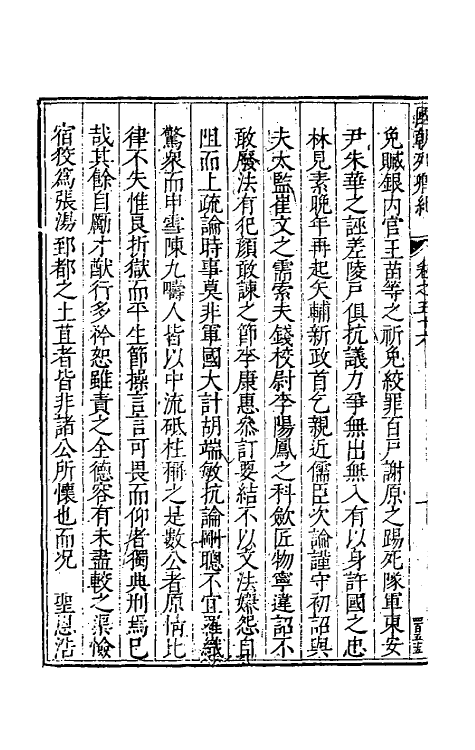 國朝列卿紀　卷之五十六
免贓銀内官王苗等之祈免絞罪百戸謝原之踢死隊軍東安
尹朱華之誣差陵戸俱抗議力爭無出無入有以身許國之忠
林見素晚年再起矢輔新政首乞親近儒臣次論謹守初詔與
夫太監崔文之需索夫錢校尉李陽鳳之科斂匠物寧違詔不
敢廢法有犯顔敢諫之節李康惠叅訂要結不以文法嫌怨自
阻而上疏論時事莫非軍國大計胡端敏抗論剛聰不宜羅織
驚衆而申雪陳九疇人皆以中流砥柱稱之是數公者原情比
律不失惟良折獄而平生節操言言可畏而仰者獨典刑焉已
哉其餘自勵才猷行多矜恕雖責之全德容有未盡較之深憸
宿狡爲張湯郅都之土苴者皆非諸公所懷也而况　聖恩浩